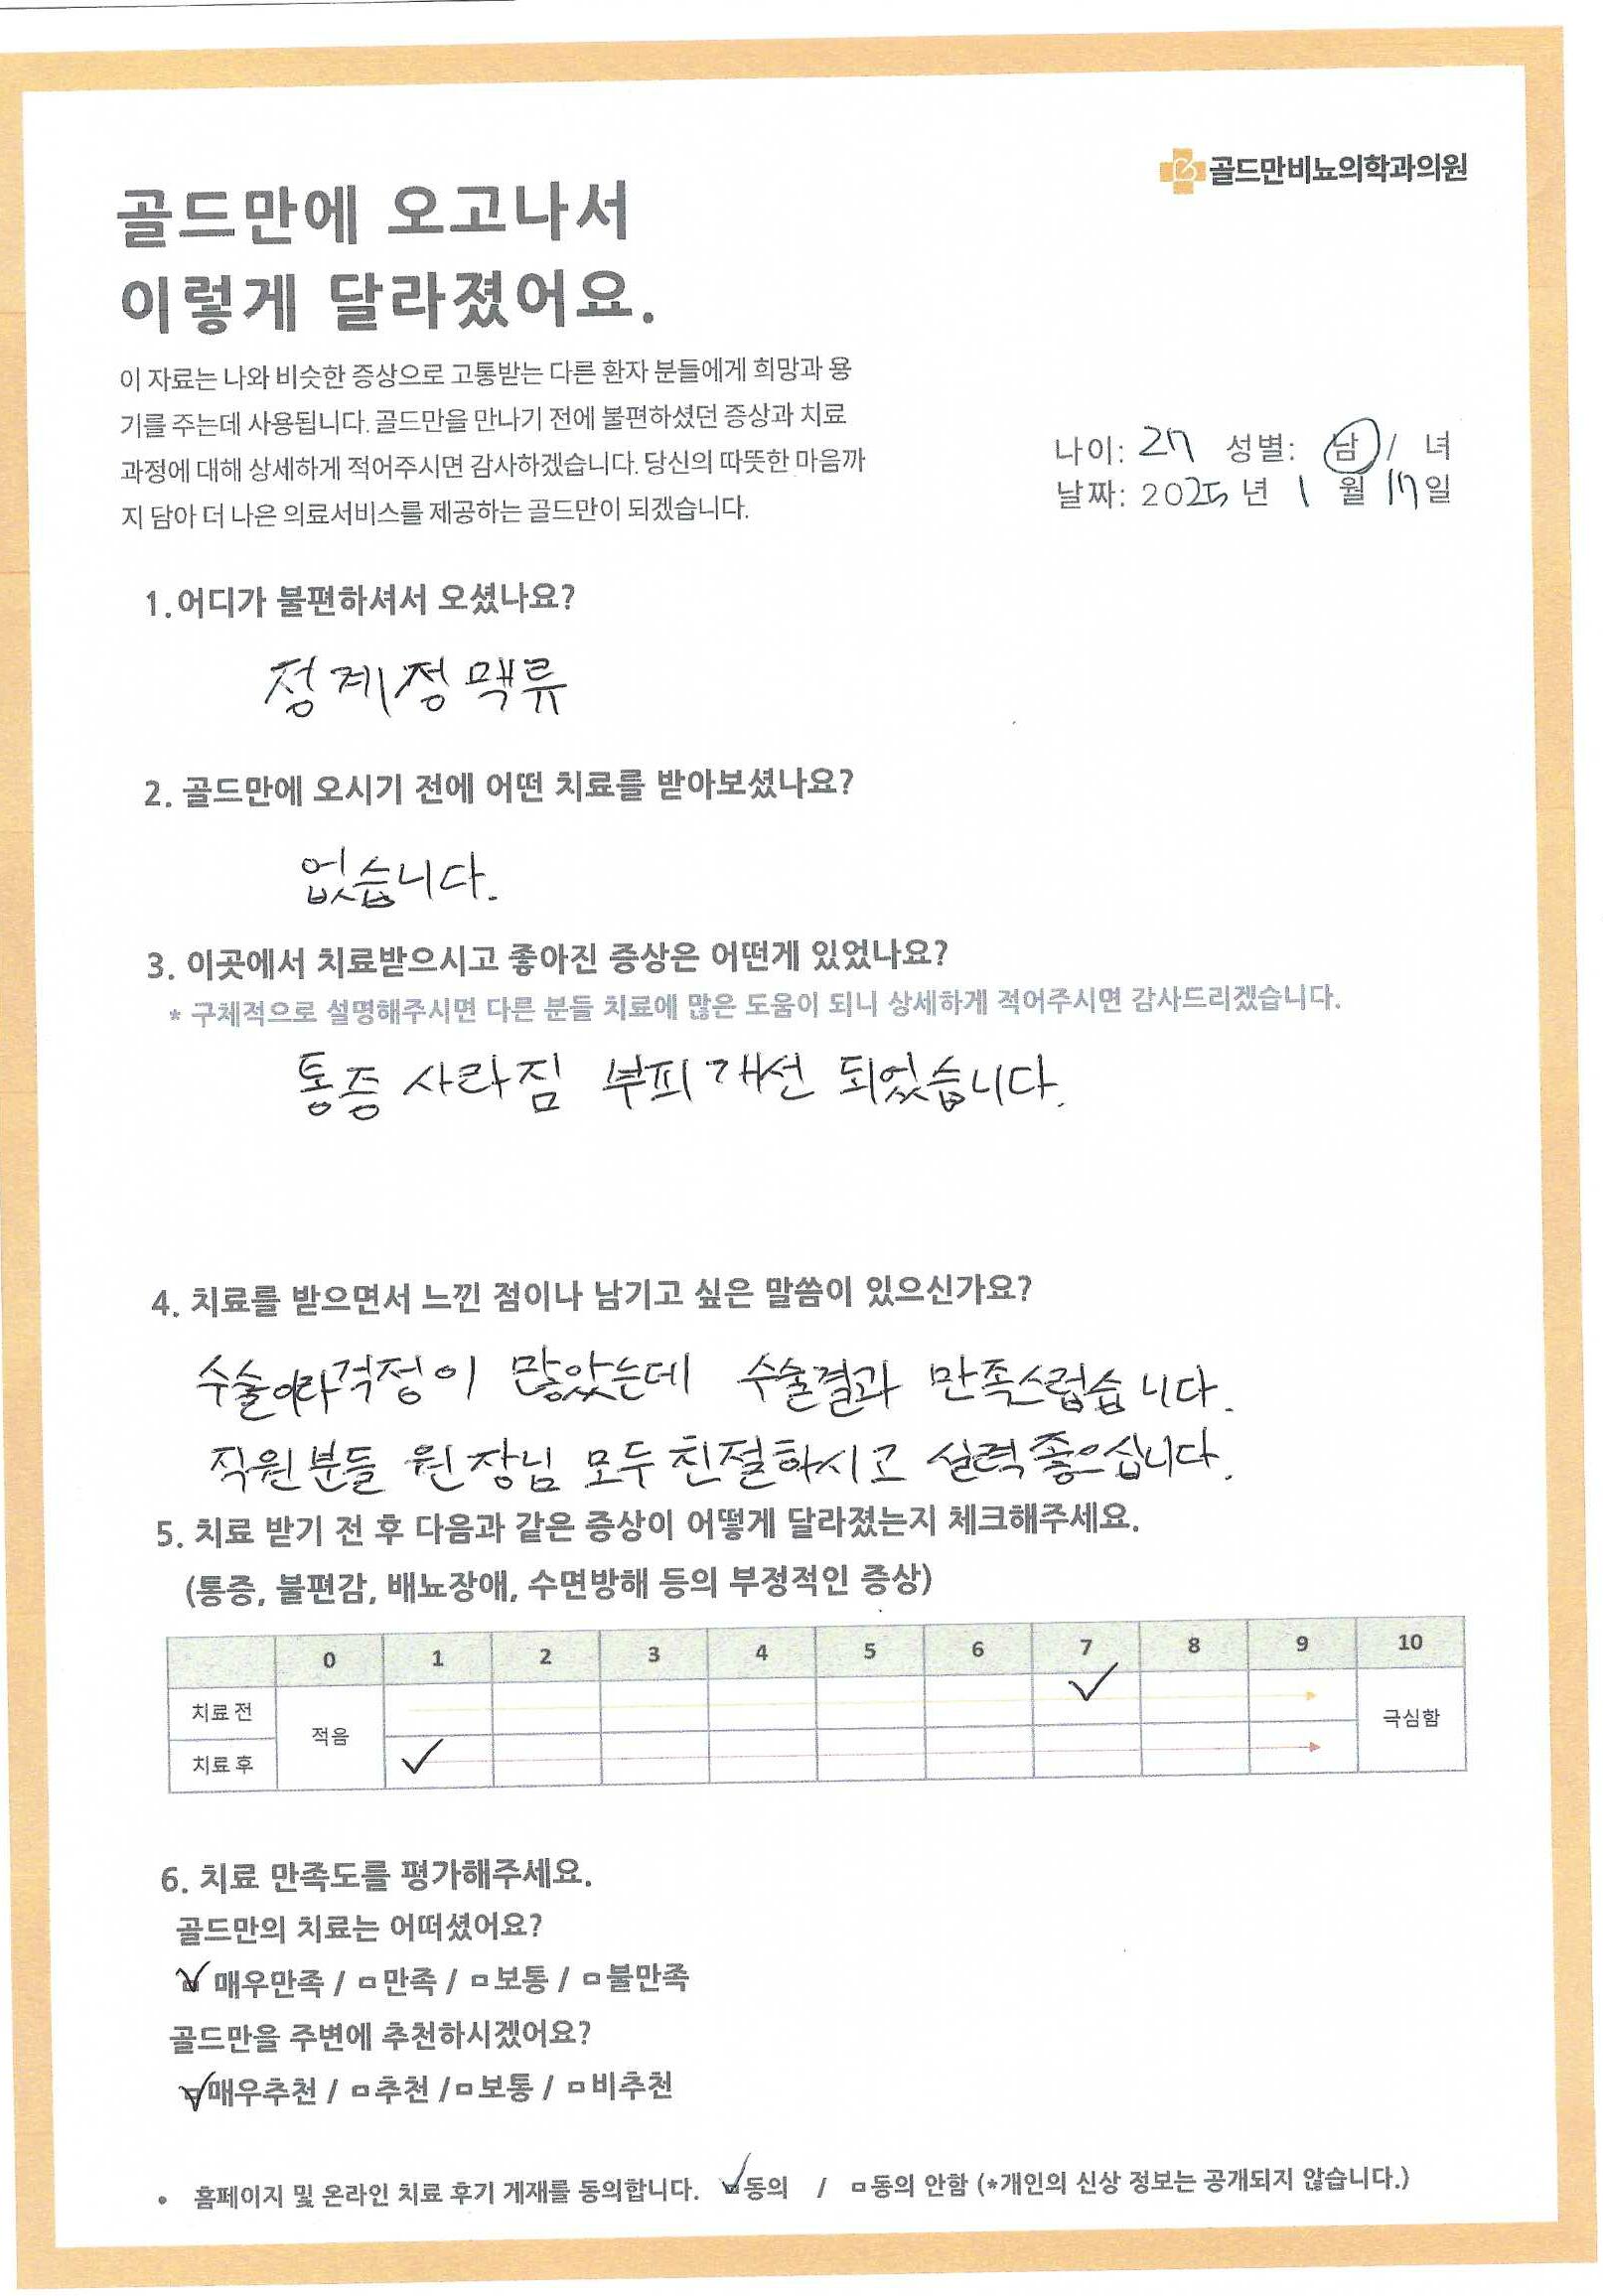 골드만비뇨의학과의원
골드만에 오고나서
이렇게 달라졌어요.
이 자료는 나와 비슷한 증상으로 고통받는 다른 환자 분들에게 희망과 용
기를 주는데 사용됩니다. 골드만을 만나기 전에 불편하셨던 증상과 치료
과정에 대해 상세하게 적어주시면 감사하겠습니다. 당신의 따뜻한 마음까
지 담아 더 나은 의료서비스를 제공하는 골드만이 되겠습니다.
나이: 27 성별: 남 / 녀
날짜: 2025 년 1 월 17 일
1.어디가 불편하셔서 오셨나요?
정계정맥류
2. 골드만에 오시기 전에 어떤 치료를 받아보셨나요?
없습니다.
3. 이곳에서 치료받으시고 좋아진 증상은 어떤게 있었나요?
* 구체적으로 설명해주시면 다른 분들 치료에 많은 도움이 되니 상세하게 적어주시면 감사드리겠습니다.
통증 사라짐 부피 개선 되었습니다.
4. 치료를 받으면서 느낀 점이나 남기고 싶은 말씀이 있으신가요?
수술이라걱정이 많았는데 수술결과 만족스럽습니다.
직원분들 원장님 모두 친절하시고 실력 좋으십니다.
5. 치료 받기 전 후 다음과 같은 증상이 어떻게 달라졌는지 체크해주세요.
(통증, 불편감, 배뇨장애, 수면방해 등의 부정적인 증상)
0 1 2 3 4 5 6 7 8 9 10
치료 전 ✓
적음 극심함
치료 후 ✓
6. 치료 만족도를 평가해주세요.
골드만의 치료는 어떠셨어요?
☑ 매우만족 / □ 만족 / □ 보통 / □ 불만족
골드만을 주변에 추천하시겠어요?
☑ 매우추천 / □ 추천 / □ 보통 / □ 비추천
• 홈페이지 및 온라인 치료 후기 게재를 동의합니다. ☑동의 / □동의 안함 (*개인의 신상 정보는 공개되지 않습니다.)